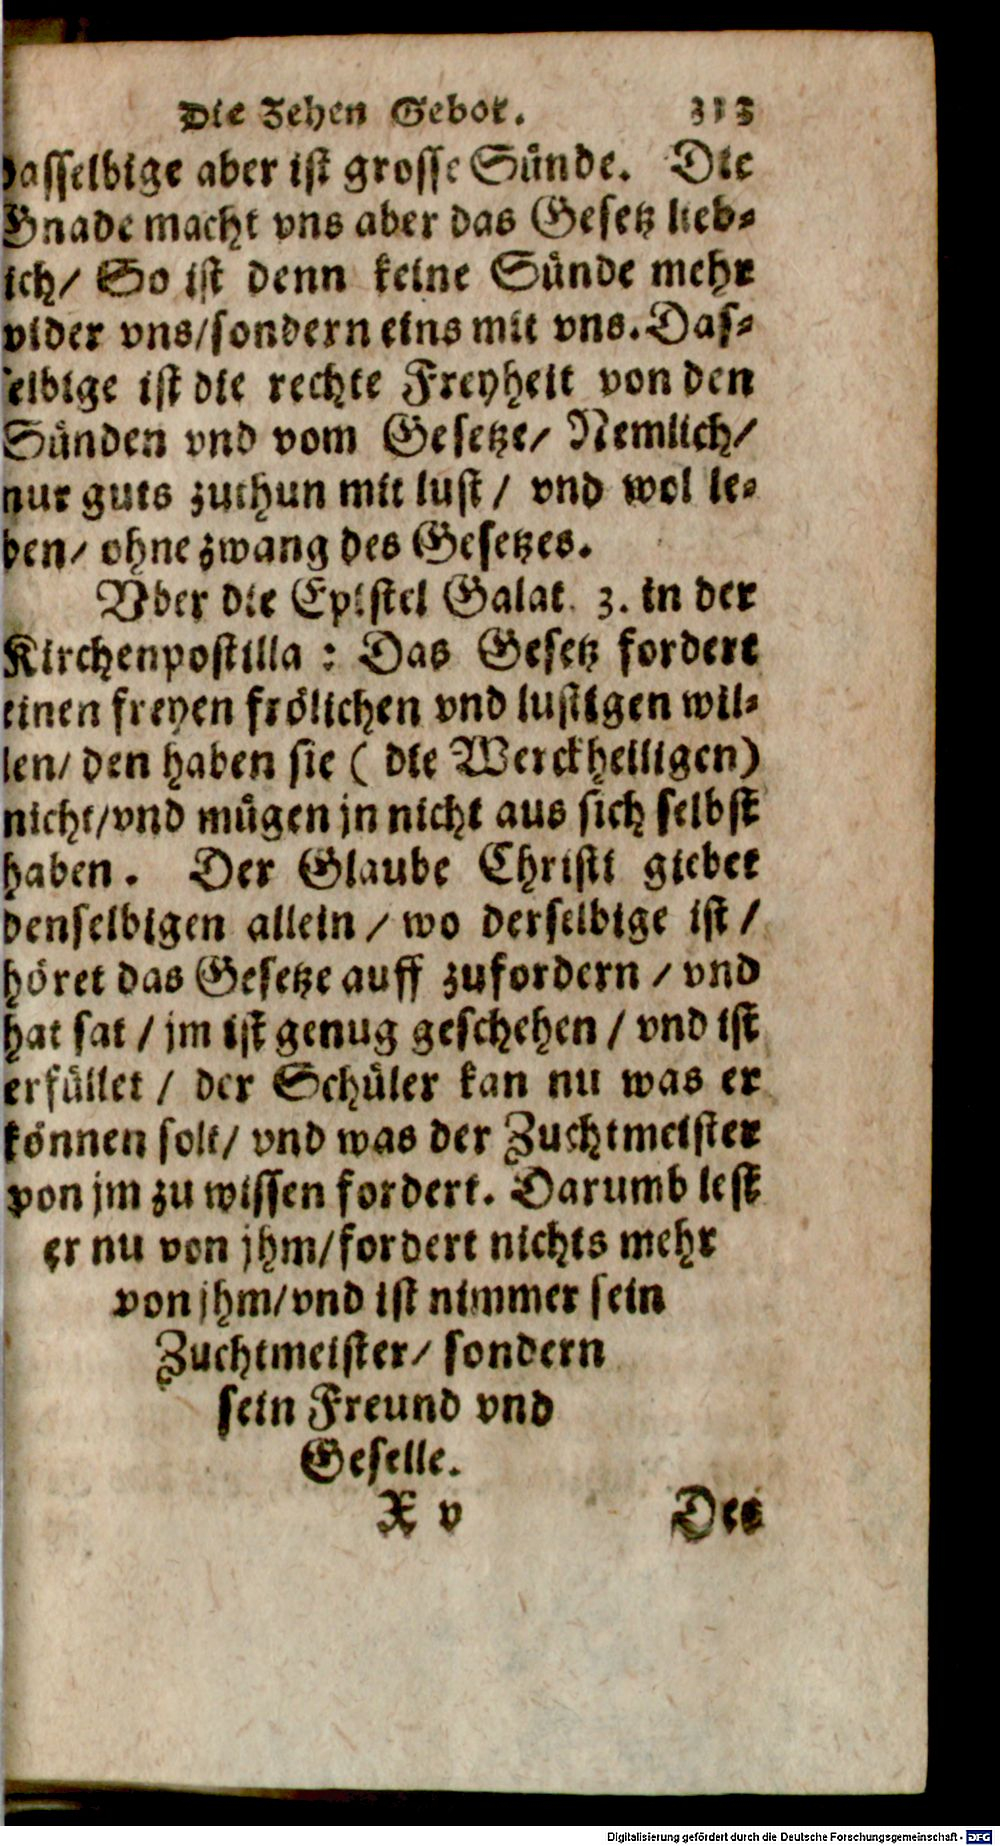 Die Zehen Gebot. 313
dasselbige aber ist grosse Sünde. Die
Gnade macht vns aber das Gesetz lieb-
lich/ So ist denn keine Sünde mehr
wider vns/sondern eins mit vns. Das-
selbige ist die rechte Freyheit von den
Sünden vnd vom Gesetze/ Nemlich/
nur guts zuthun mit lust / vnd wol le-
ben/ ohne zwang des Gesetzes.
Vber die Epistel Galat. 3. in der
Kirchenpostilla : Das Gesetz fordert
einen freyen frölichen vnd lustigen wil-
len/ den haben sie ( die Werckheiligen)
nicht/vnd mügen jn nicht aus sich selbst
haben. Der Glaube Christi giebet
denselbigen allein / wo derselbige ist /
höret das Gesetze auff zufordern / vnd
hat sat / jm ist genug geschehen / vnd ist
erfüllet / der Schüler kan nu was er
können solt/ vnd was der Zuchtmeister
von jm zu wissen fordert. Darumb lest
er nu von jhm/fordert nichts mehr
von jhm/vnd ist nimmer sein
Zuchtmeister/ sondern
sein Freund vnd
Geselle.
X v Der
Digitalisierung gefördert durch die Deutsche Forschungsgemeinschaft - DFG